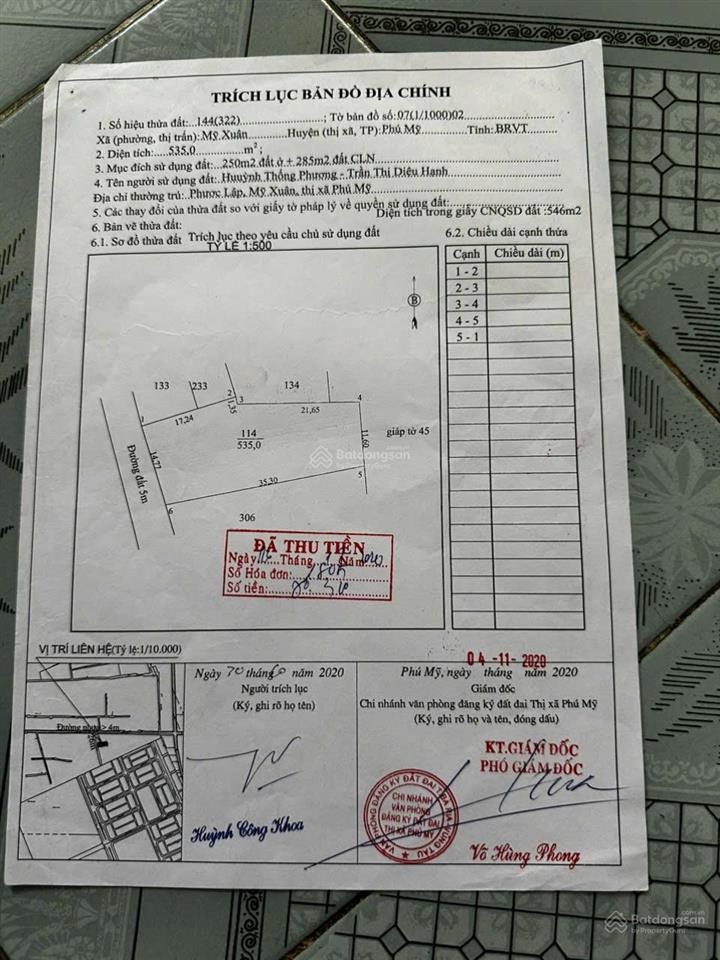 TRÍCH LỤC BẢN ĐỒ ĐỊA CHÍNH
1. Số hiệu thửa đất:..144(322)....................; Tờ bản đồ số:07(1/1000)02
Xã (phường, thị trấn):Mỹ Xuân..........Huyện (thị xã, TP):Phú Mỹ..........Tỉnh: BRVT
2. Diện tích:....535,0............m²;
3. Mục đích sử dụng đất:..250m2 đất ở + 285m2 đất CLN
4. Tên người sử dụng đất: Huỳnh Thống Phương - Trần Thị Diệu Hạnh
Địa chỉ thường trú: Phước Lập, Mỹ Xuân, thị xã Phú Mỹ
5. Các thay đổi của thửa đất so với giấy tờ pháp lý về quyền sử dụng đất:
Diện tích trong giấy CNQSD đất :546m2
6. Bản vẽ thửa đất:
6.1. Sơ đồ thửa đất Trích lục theo yêu cầu chủ sử dụng đất
TỶ LỆ 1:500
6.2. Chiều dài cạnh thửa
Cạnh Chiều dài (m)
1 - 2
2 - 3
3 - 4
4 - 5
5 - 1
B
133 233 134
1 2 3 4
17,24 1,35 21,65
114
535,0
11,60
giáp tờ 45
Đường đất 5m
14,77
35,30
5
6
306
Batdongsan
by PropertyGuru
ĐÃ THU TIỀN
Ngày Tháng Năm
Số Hóa đơn:
Số tiền:
VỊ TRÍ LIÊN HỆ(Tỷ lệ:1/10.000)
Đường nhựa > 4m
Ngày tháng năm 2020
Người trích lục
(Ký, ghi rõ họ tên)
Huỳnh Công Khoa
04 -11- 2020
Phú Mỹ, ngày tháng năm 2020
Giám đốc
Chi nhánh văn phòng đăng ký đất đai Thị xã Phú Mỹ
(Ký, ghi rõ họ và tên, đóng dấu)
KT.GIÁM ĐỐC
PHÓ GIÁM ĐỐC
VĂN PHÒNG ĐĂNG KÝ ĐẤT ĐAI T. BÀ RỊA VŨNG TÀU
CHI NHÁNH
VĂN PHÒNG
ĐĂNG KÝ ĐẤT ĐAI
THỊ XÃ PHÚ MỸ
Võ Hùng Phong
Batdongsan.com.vn
by PropertyGuru